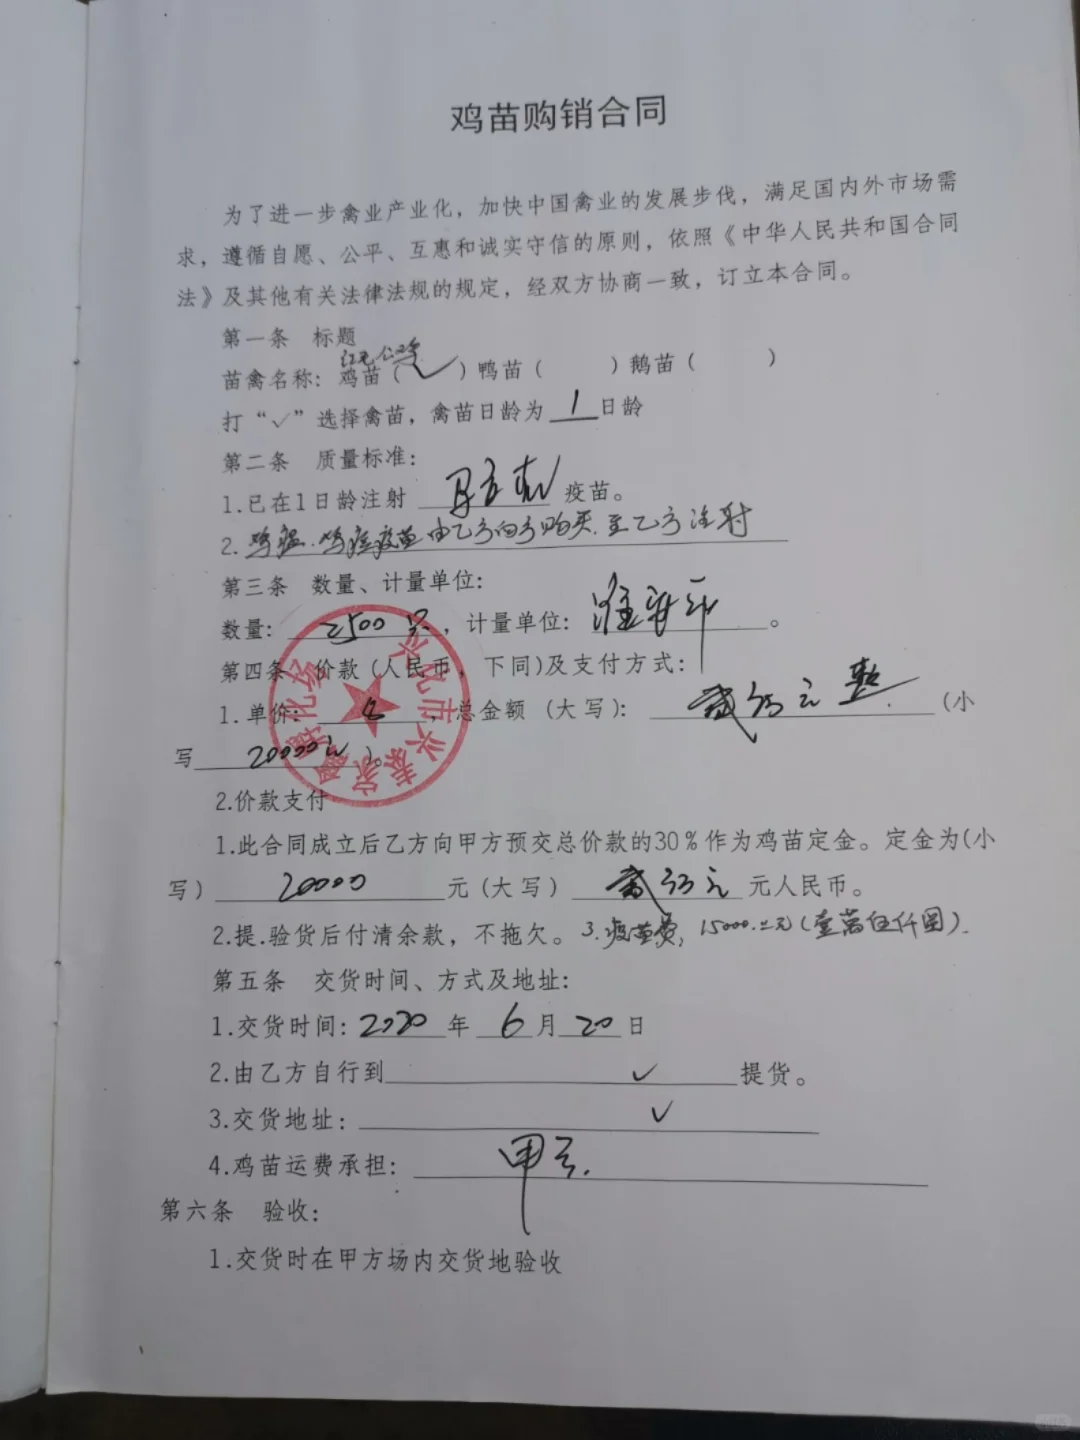 鸡苗购销合同
为了进一步禽业产业化，加快中国禽业的发展步伐，满足国内外市场需
求，遵循自愿、公平、互惠和诚实守信的原则，依照《中华人民共和国合同
法》及其他有关法律法规的规定，经双方协商一致，订立本合同。
第一条 标题
红毛公鸡
苗禽名称：鸡苗（✓）鸭苗（ ）鹅苗（ ）
打“✓”选择禽苗，禽苗日龄为 1 日龄
第二条 质量标准：
1.已在1日龄注射 马立克 疫苗。
2.鸡瘟.鸡痘疫苗由乙方向方购买.至乙方注射
第三条 数量、计量单位：
数量：2500只，计量单位：
第四条 价款（人民币，下同)及支付方式：
1.单价：8，总金额（大写）：贰万元整（小
写 20000元）。
2.价款支付
1.此合同成立后乙方向甲方预交总价款的30％作为鸡苗定金。定金为(小
写）20000元（大写）贰万元 元人民币。
2.提.验货后付清余款，不拖欠。3.疫苗费，15000.元（壹萬伍仟圆）.
第五条 交货时间、方式及地址：
1.交货时间：2020年6月20日
2.由乙方自行到 ✓ 提货。
3.交货地址： ✓
4.鸡苗运费承担：甲方.
第六条 验收：
1.交货时在甲方场内交货地验收
兴化市兴泰家禽孵化场